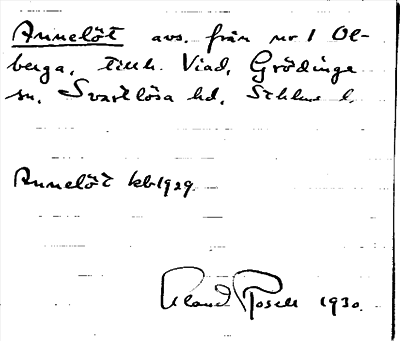 Annelöt avs. från nr 1 Ol-
berga, tillh. Viad, Grödinge
sn, Svartlösa hd, Sthlms l.
Annelöt kb 1929
Roland Rosell 1930.